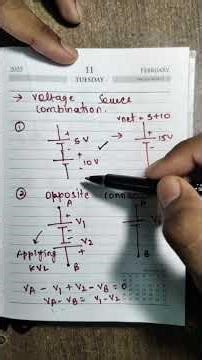 2025 11 FEBRUARY
TUESDAY
→ Voltage Source
combination.
Vnet = 5+10
①
+
5V
-
+
10V
-
→
+
15V
-
② opposite connec
A
+
V1
-
-
V2
+
B
A
B
Applying
KVL
VA - V1 + V2 - VB = 0
VA - VB = V1 - V2